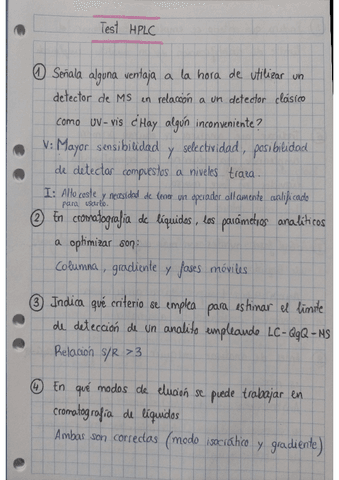 Test HPLC
① Señala alguna ventaja a la hora de utilizar un
detector de MS en relación a un detector clásico
como UV-vis ¿Hay algún inconveniente?
V: Mayor sensibilidad y selectividad, posibilidad
de detectar compuestos a niveles traza.
I: Alto coste y necesidad de tener un operador altamente cualificado
para usarlo.
② En cromatografía de líquidos, los parámetros analíticos
a optimizar son:
Columna, gradiente y fases móviles
③ Indica qué criterio se emplea para estimar el límite
de detección de un analito empleando LC-QqQ-MS
Relación S/R >3
④ En qué modos de elución se puede trabajar en
cromatografía de líquidos
Ambas son correctas (modo isocrático y gradiente)